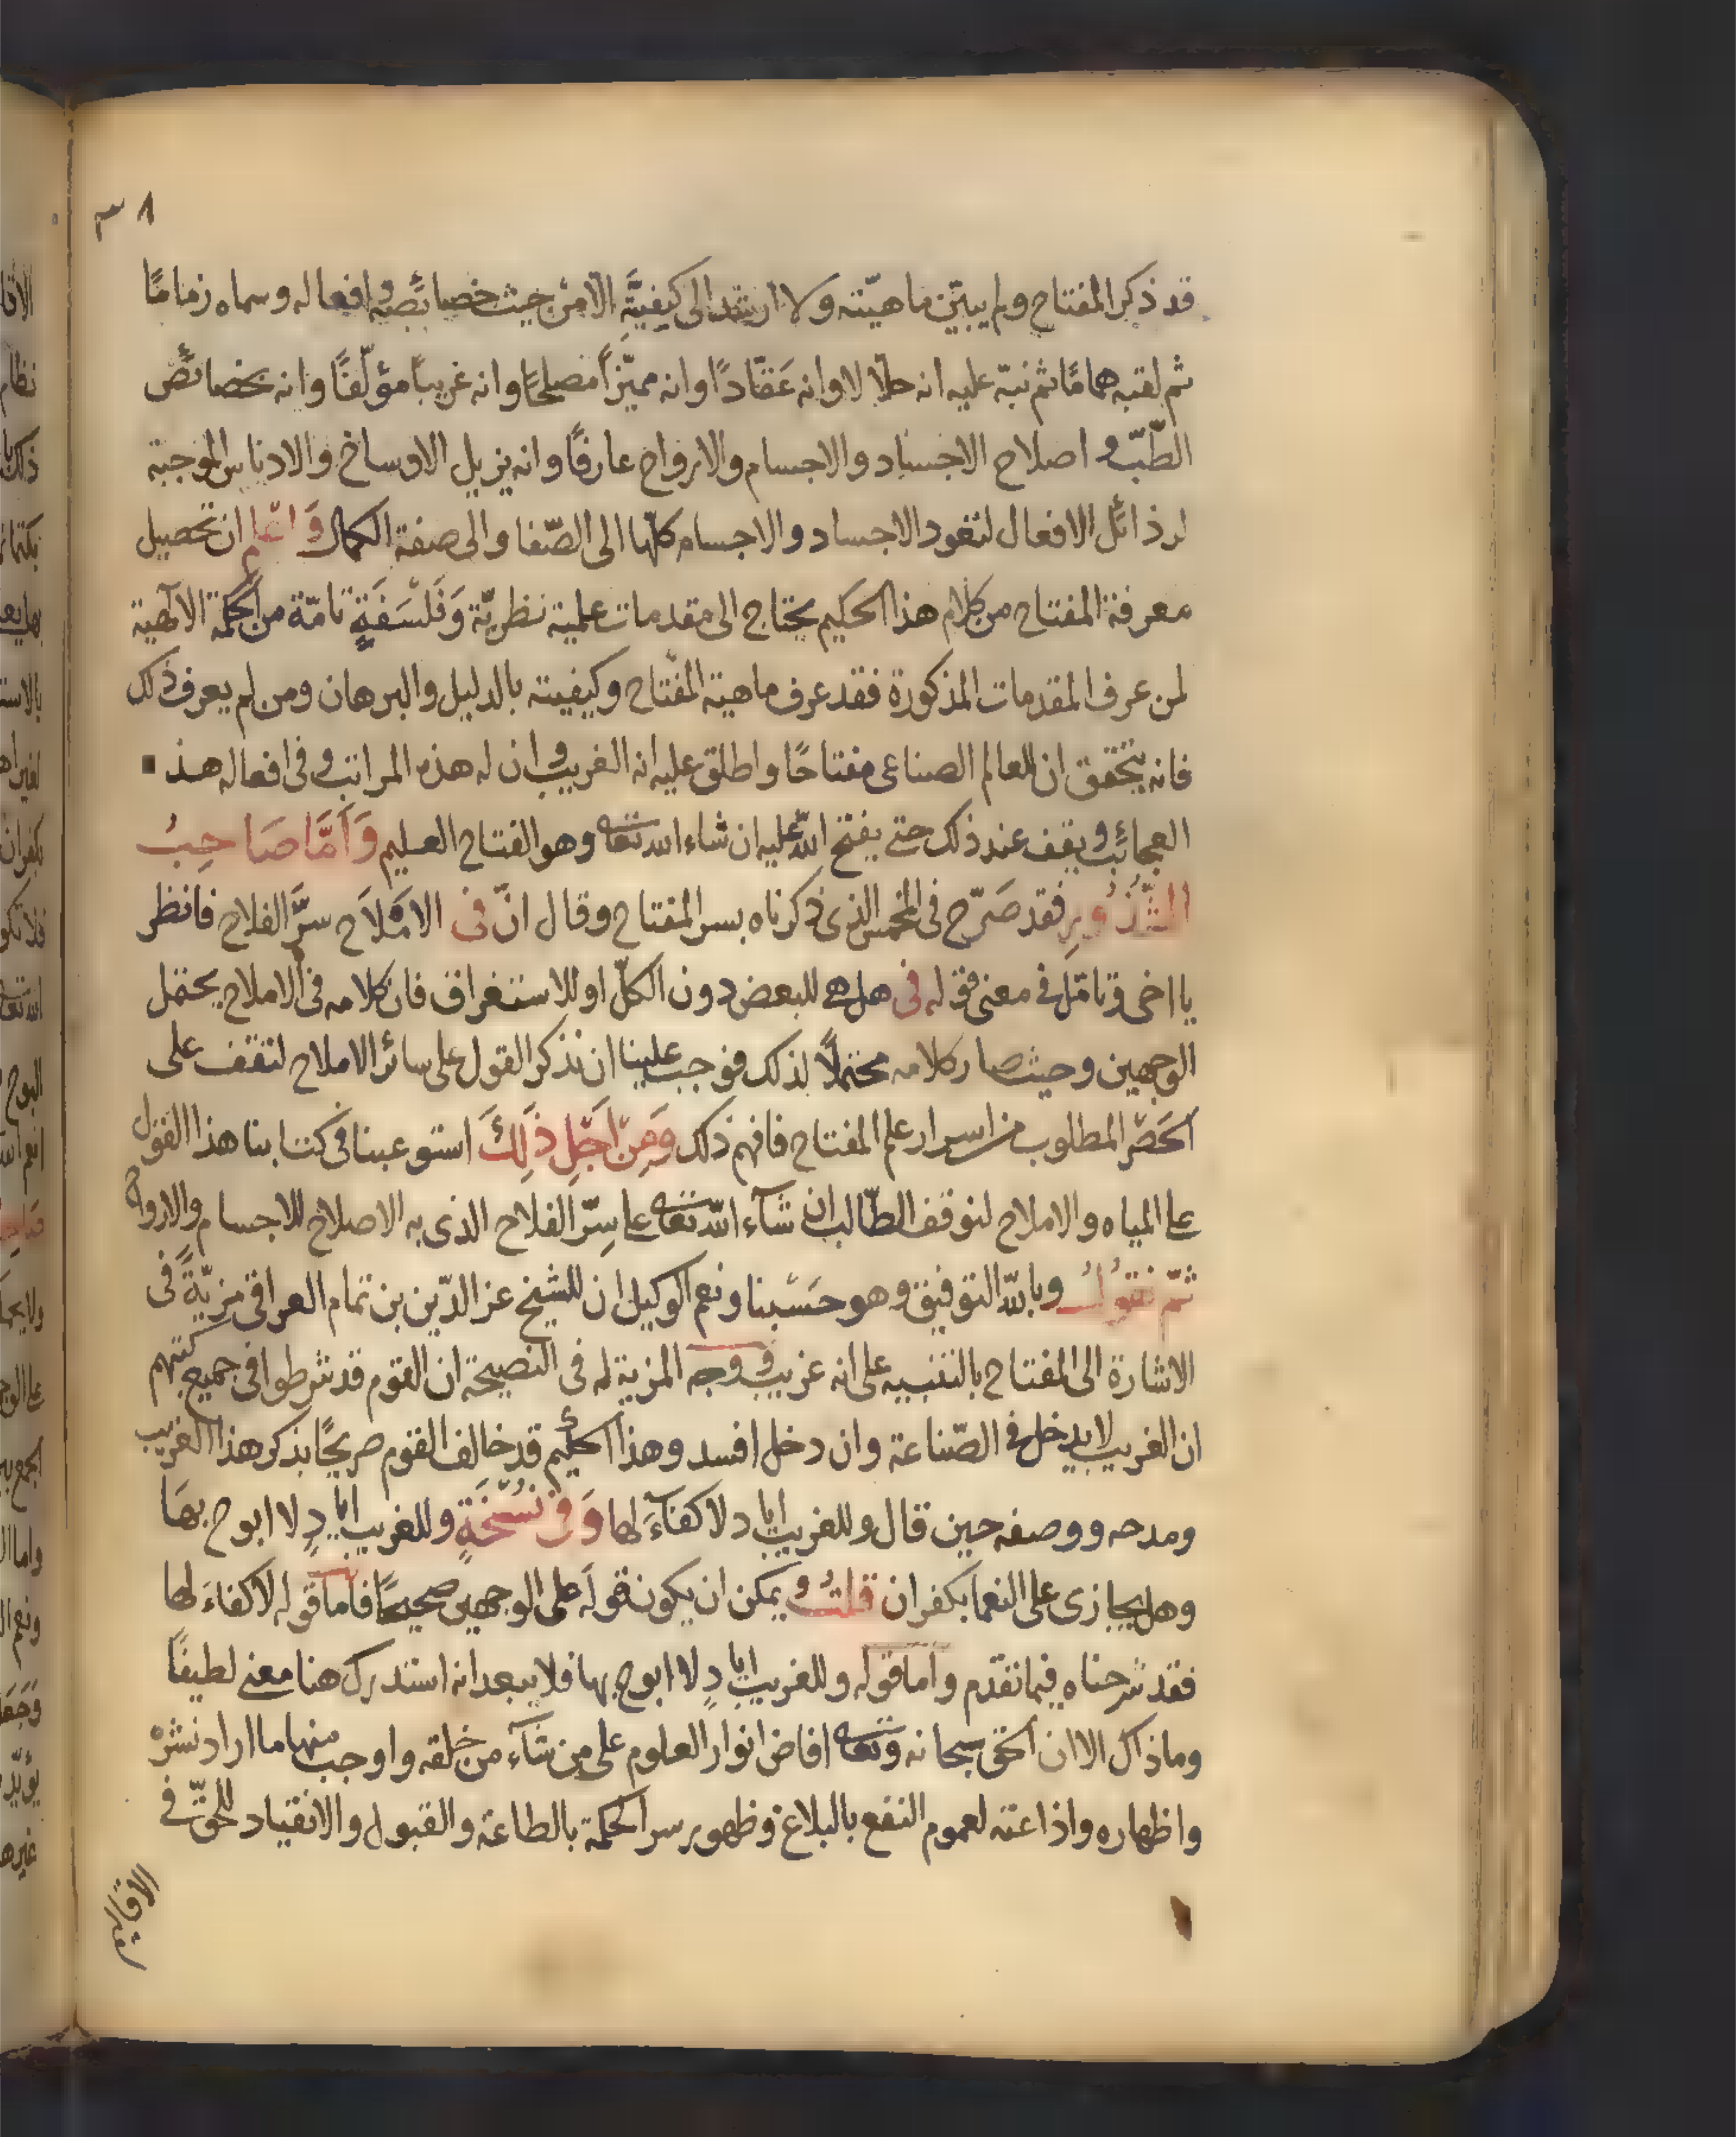 ٣٨
قد ذكر المفتاح ولم يبيّن ماهيّته ولا ارشد الى كيفيّة الا من حيث خصائصه وافعاله وسماه زمامًا
ثم لقبه هماما ثم نبّه عليه انه حلالا وانه عَقّادًا وانه مميّزاً مصلحًا وانه غريبًا مؤلّفًا وانه بخصائص
الطّبّ و اصلاح الاجساد والاجسام والارواح عارفًا وانه يزيل الاوساخ والادناس الموجبة
لرذائل الافعال لتعود الاجساد والاجسام كلها الى الصّفا والى صفة الكمال وَاعلم ان تحصيل
معرفة المفتاح من كلام هذا الحكيم يحتاج الى مقدمات علمية نظريّة وَفَلْسَفَةٍ تامّة من الحكمة الالهية
لمن عرف المقدمات المذكورة فقد عرف ماهية المفتاح وكيفيته بالدليل والبرهان ومن لم يعرف ذلك
فانه يتحقق ان للعالم الصناعى مفتاحًا واطلق عليه انه الغريب وان له هذه المراتب وفى افعاله هذ
العجائب ويقف عند ذلك حتى يفتح الله عليه ان شاء الله تعالى وهو الفتاح العليم وَاَمَّا صَاحِبُ
الشّذُورِ فقد صَرّح فى المخمس الذى ذكرناه بسر المفتاح وقال انّ فى الامْلاَح سرَّ الفلاح فانظر
يا اخى وتامّل فى معنى قوله فى هل هى للبعض دون الكلّ او للاستغراق فان كلامه فى الاملاح يحتمل
الوجهين وحيث صار كلامه محتملًا لذلك فوجب علينا ان نذكر القول على سائر الاملاح لتقف على
المطلوب من اسرار علم المفتاح فافهم ذلك وَمِنْ اَجْلِ ذَلِكَ استوعبنا فى كتابنا هذا القول
على المياه والاملاح لنوقف الطّالب ان شآء الله تعالى على سِرّ الفلاح الذى به الاصلاح للاجسام والارواح
ثمّ نقولُ وبالله التوفيق وهو حَسْبنا ونعم الوكيل ان للشيخ عز الدّين بن تمام العراقى مزيّةً فى
الاشارة الى المفتاح بالتنبيه على انه غريب ووجه المزية له فى النصيحة ان القوم قد شرطوا فى جميع كتبهم
ان الغريب لا يدخل فى الصّناعة وان دخل افسد وهذا الحكيم قد خالف القوم صريحًا بذكر هذا الغريب
ومدحه ووصفه حين قال وللغريب اياد لا كفآءَ لها وَفى نُسْخَةٍ وللغريب ايادٍ لا ابوح بهَا
وهل يجازى على النعما بكفران قلتُ ويمكن ان يكون قوله على الوجهين صحيحًا فاما قوله لا كفاءَ لها
فقد شرحناه فيما تقدم واما قوله وللغريب ايادٍ لا ابوح بها فلا يبعد انه استدرك هنا معنى لطيفًا
وما ذاك الا ان الحق سبحانه وتعالى افاض انوار العلوم على من شآء من خلقه واوجب منها ما اراد نشره
واظهاره واذاعته لعموم النفع بالبلاغ وظهور سر الحكمة بالطاعة والقبول والانقياد للحقّ فى